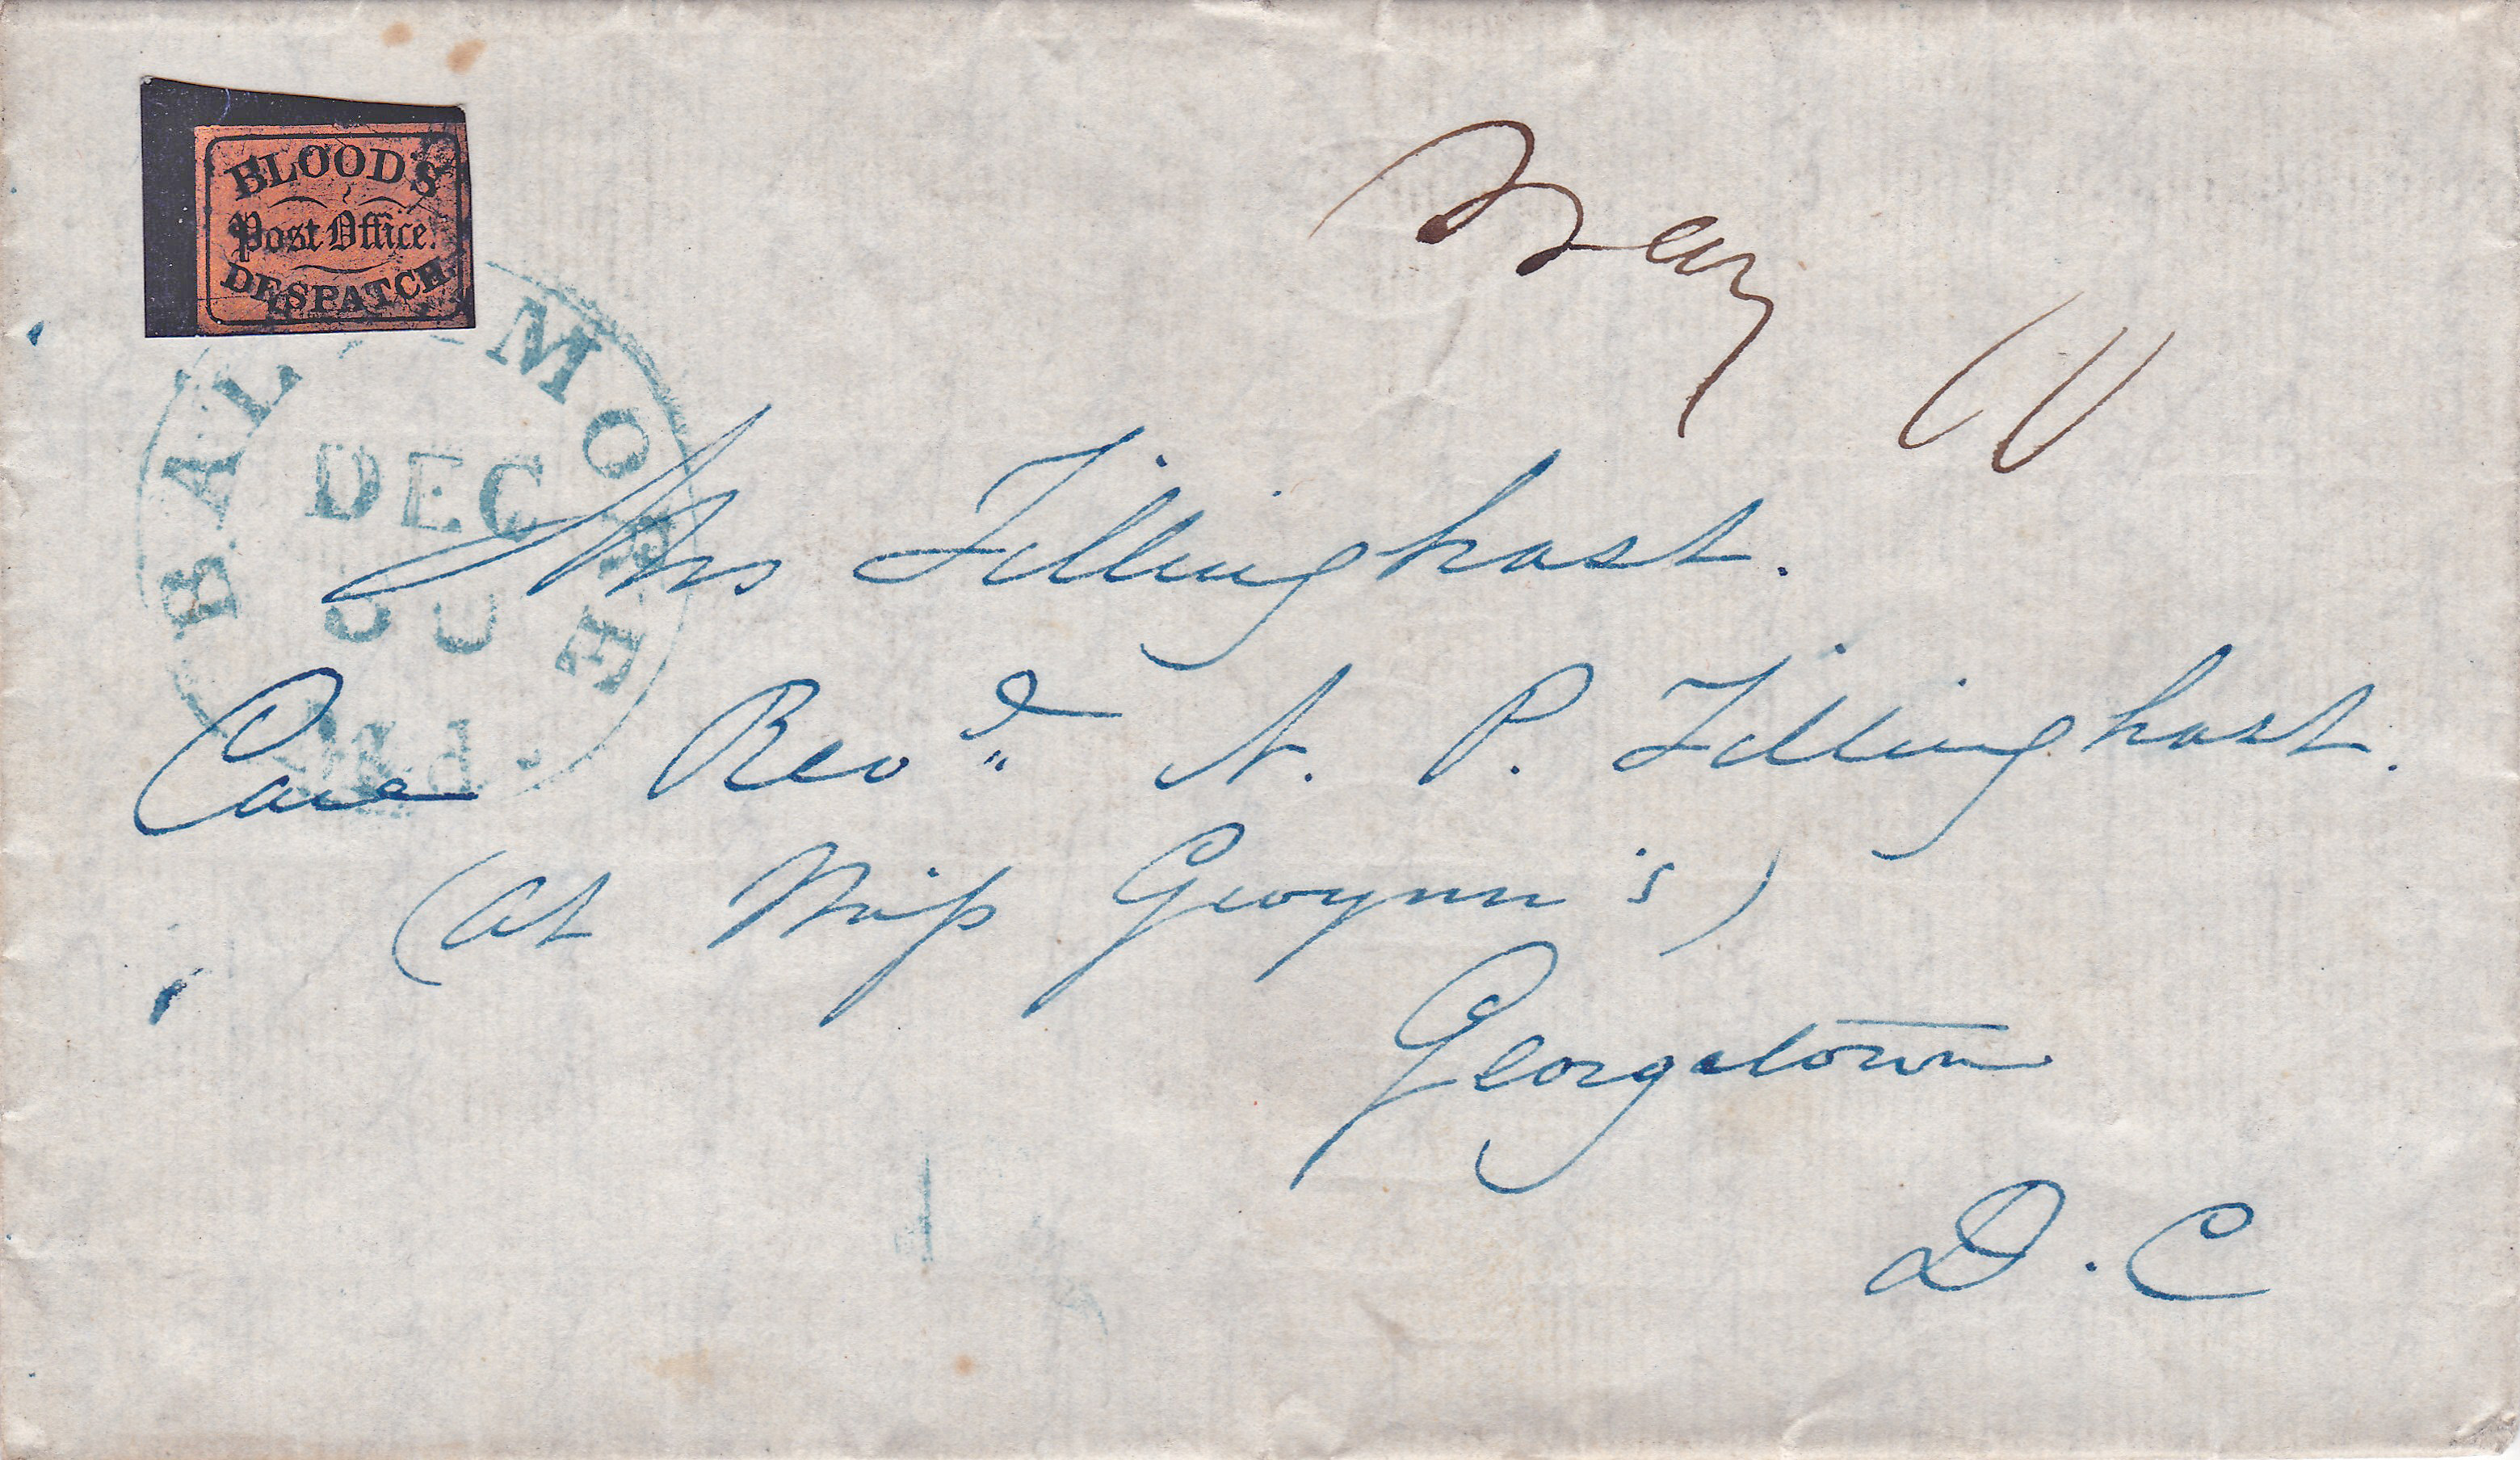 BLOOD'S
Post Office.
DESPATCH
BAL MORE
DEC
Md.
Way 11
Mrs Tillinghast.
Care Revd. N. P. Tillinghast.
(at Miss Gwynn's)
Georgetown
D. C